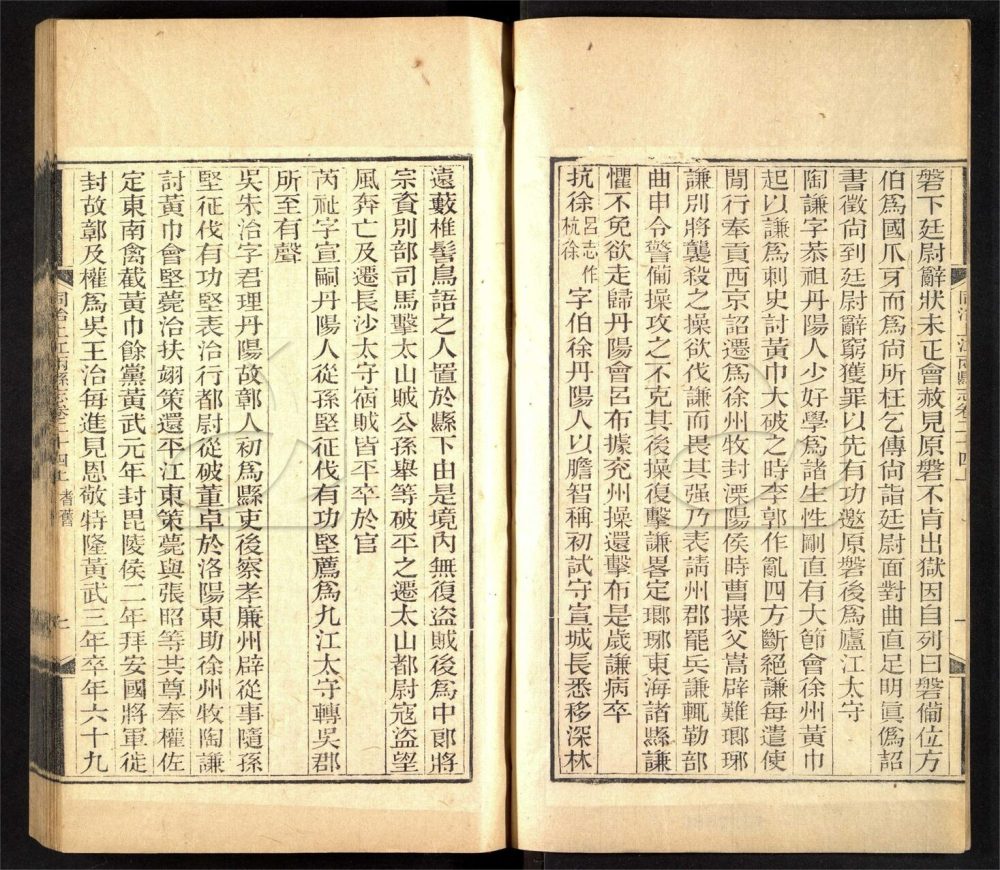 磐下廷尉辭狀未正會赦見原磐不肯出獄因自列曰磐備位方
伯爲國爪牙而爲尙所枉乞傳尙詣廷尉面對曲直足明眞僞詔
書徵尙到廷尉辭窮獲罪以先有功邀原磐後爲廬江太守
陶謙字恭祖丹陽人少好學爲諸生性剛直有大節會徐州黃巾
起以謙爲刺史討黃巾大破之時李郭作亂四方斷絕謙每遣使
閒行奉貢西京詔遷爲徐州牧封溧陽侯時曹操父嵩辟難瑯琊
謙別將襲殺之操欲伐謙而畏其强乃表請州郡罷兵謙輒勒部
曲申令警備操攻之不克其後操復擊謙畧定瑯琊東海諸縣謙
懼不免欲走歸丹陽會呂布據兖州操還擊布是歲謙病卒
抗徐呂志作杭徐字伯徐丹陽人以膽智稱初試守宣城長悉移深林
遠藪椎髻鳥語之人置於縣下由是境內無復盜賊後爲中郎將
宗資別部司馬擊太山賊公孫舉等破平之遷太山都尉寇盜望
風奔亡及遷長沙太守宿賊皆平卒於官
芮祉字宣嗣丹陽人從孫堅征伐有功堅薦爲九江太守轉吳郡
所至有聲
吳朱治字君理丹陽故鄣人初爲縣吏後察孝廉州辟從事隨孫
堅征伐有功堅表治行都尉從破董卓於洛陽東助徐州牧陶謙
討黃巾會堅薨治扶翊策還平江東策薨與張昭等共尊奉權佐
定東南禽截黃巾餘黨黃武元年封毘陵侯二年拜安國將軍徙
封故鄣及權爲吳王治每進見恩敬特隆黃武三年卒年六十九
同治上江兩縣志卷二十四上 耆舊
七